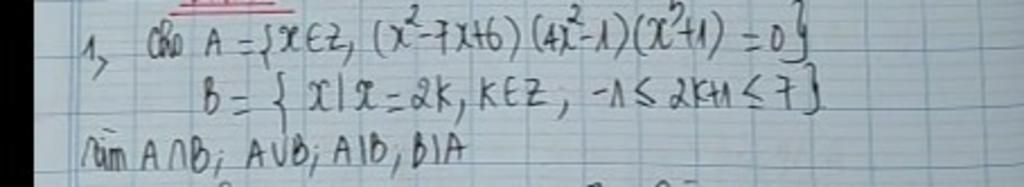 1, Cho A = {x∈Z, (x²-7x+6)(4x²-1)(x⁵+1) = 0}
B = { x | x = 2k, k∈Z, -1 ≤ 2k+1 ≤ 7}
Tìm A∩B; A∪B; A\B, B\A